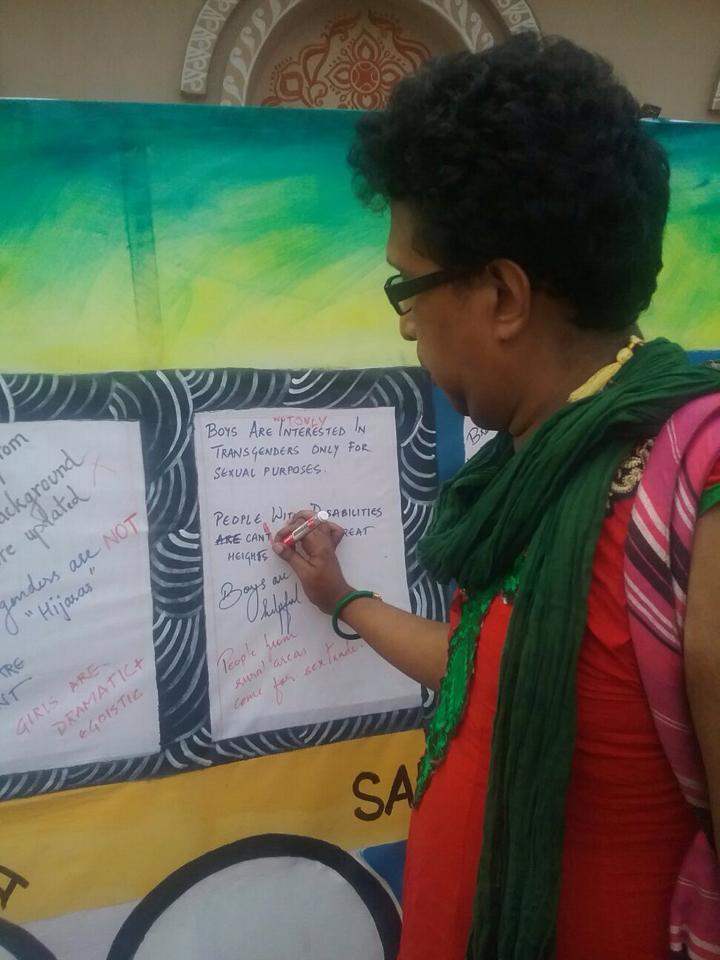 rom
background
re updated X
genders are NOT
"Hijaras"
RE
NT
GIRLS ARE
DRAMATIC +
EGOISTIC
NOT ONLY
BOYS ARE INTERESTED IN
TRANSGENDERS ONLY FOR
SEXUAL PURPOSES.
PEOPLE WITH DISABILITIES
ARE CANT REAT
HEIGHTS
Boys are
helpful
People from
rural areas
come for sex trade.
SA